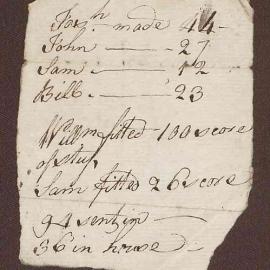 Josh made 44
John — 27
Sam — 12
Bill — 23
Willm fitted — 100 score
of stuf
Sam fitted 26 score
94 sent in —
36 in house —